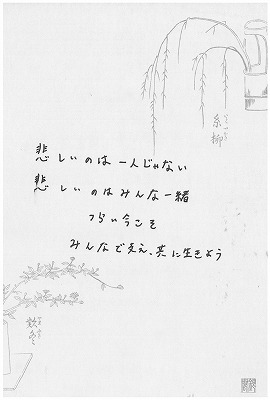 悲しいのは一人じゃない
悲しいのはみんな一緒
つらい今こそ
みんなで支え、共に生きよう
糸柳